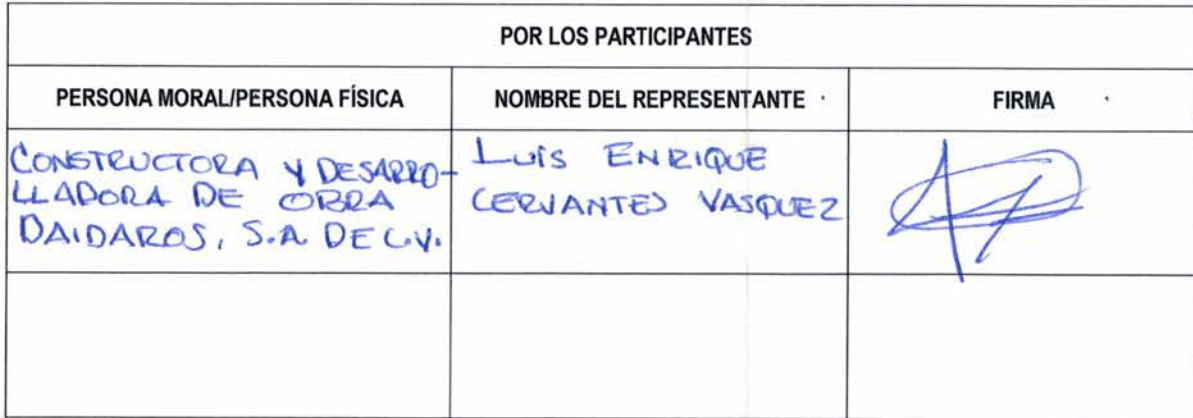 POR LOS PARTICIPANTES
PERSONA MORAL/PERSONA FÍSICA
NOMBRE DEL REPRESENTANTE
FIRMA
CONSTRUCTORA Y DESARRO-
LLADORA DE OBRA
DAIDAROS, S.A. DE C.V.
LUIS ENRIQUE
CERVANTES VASQUEZ